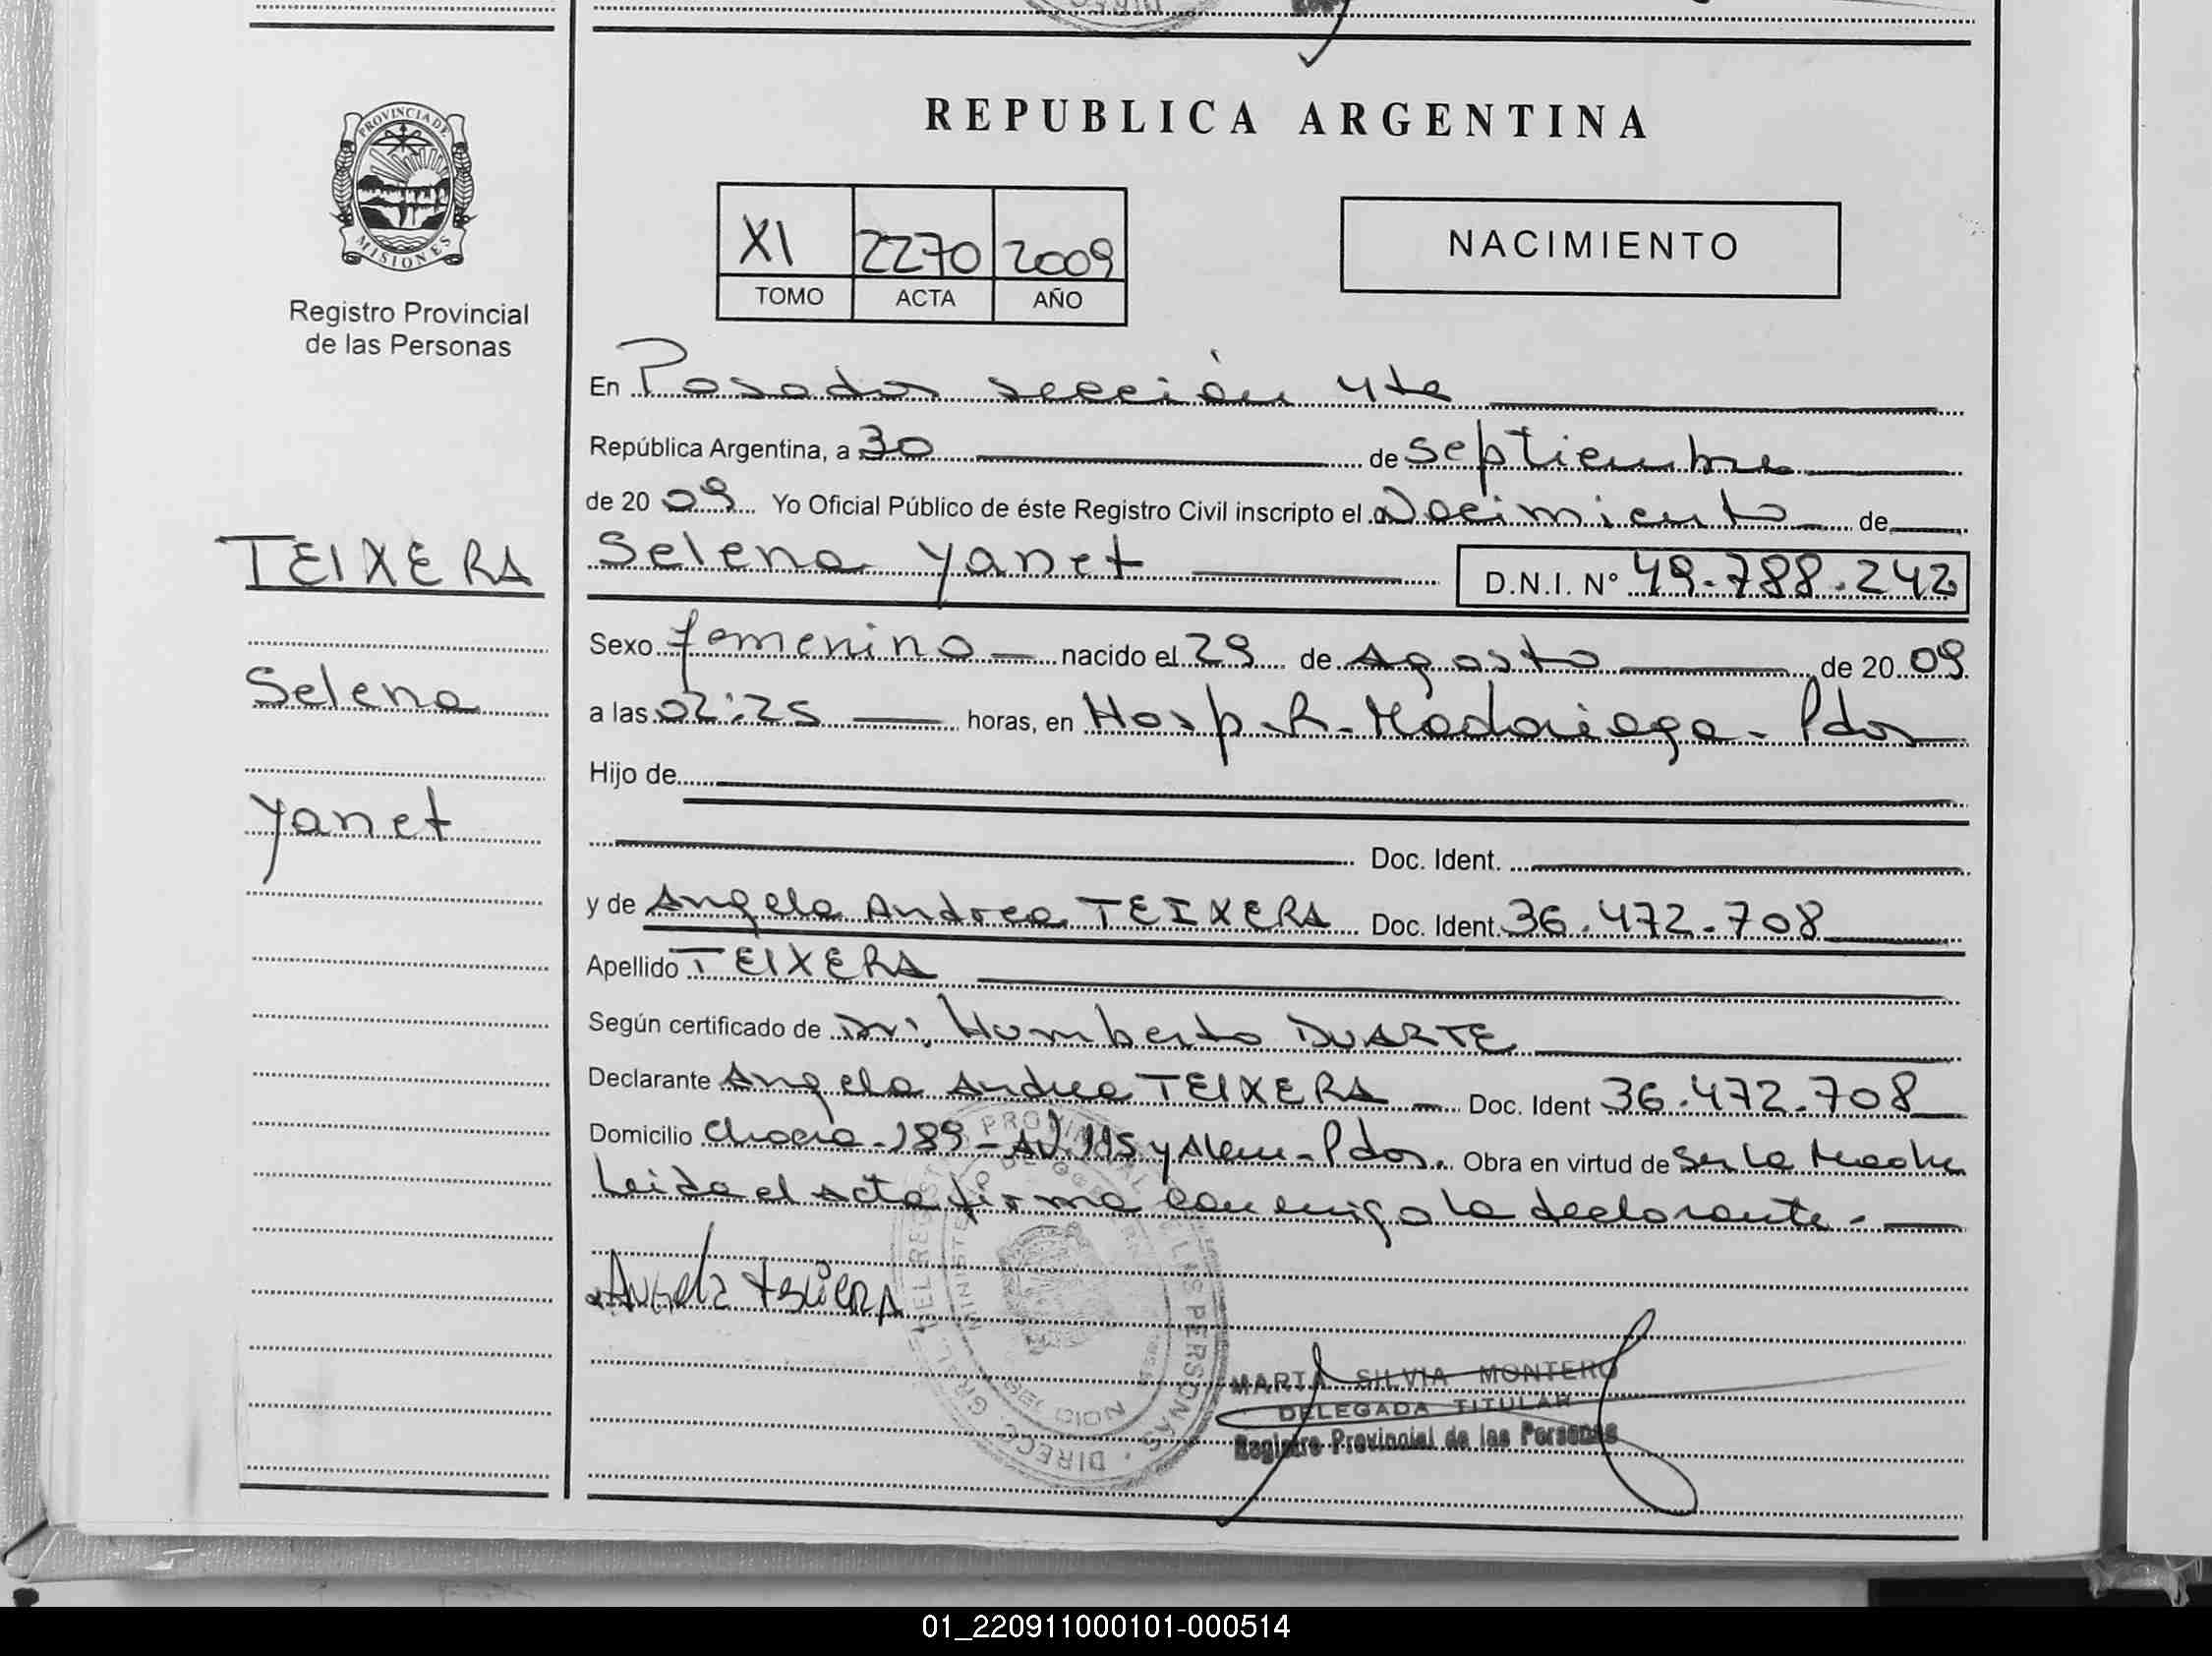 REPUBLICA ARGENTINA
PROVINCIA DE
MISIONES
Registro Provincial
de las Personas
XI 2270 2009
TOMO ACTA AÑO
NACIMIENTO
En Posadas sección 4ta
República Argentina, a 30 de septiembre
de 20 09 Yo Oficial Público de éste Registro Civil inscripto el Nacimiento de
TEIXERA
Selena Yanet D.N.I. Nº 49.788.242
Sexo femenino nacido el 29 de Agosto de 20 09
Selena
a las 02:25 horas, en Hosp. R. Madariaga - Pdas
Hijo de
Yanet
Doc. Ident.
y de Angela Andrea TEIXERA Doc. Ident. 36.472.708
Apellido TEIXERA
Según certificado de Dr: Humberto DUARTE
Declarante Angela Andrea TEIXERA Doc. Ident 36.472.708
Domicilio Chacra - 189 - AV. 115 y Alem - Pdas. Obra en virtud de Ser la Madre
Leida el acta firma conmigo la declarante.
Angela
MARTA SILVIA MONTERO
DELEGADA TITULAR
Registro Provincial de las Personas
01_220911000101-000514